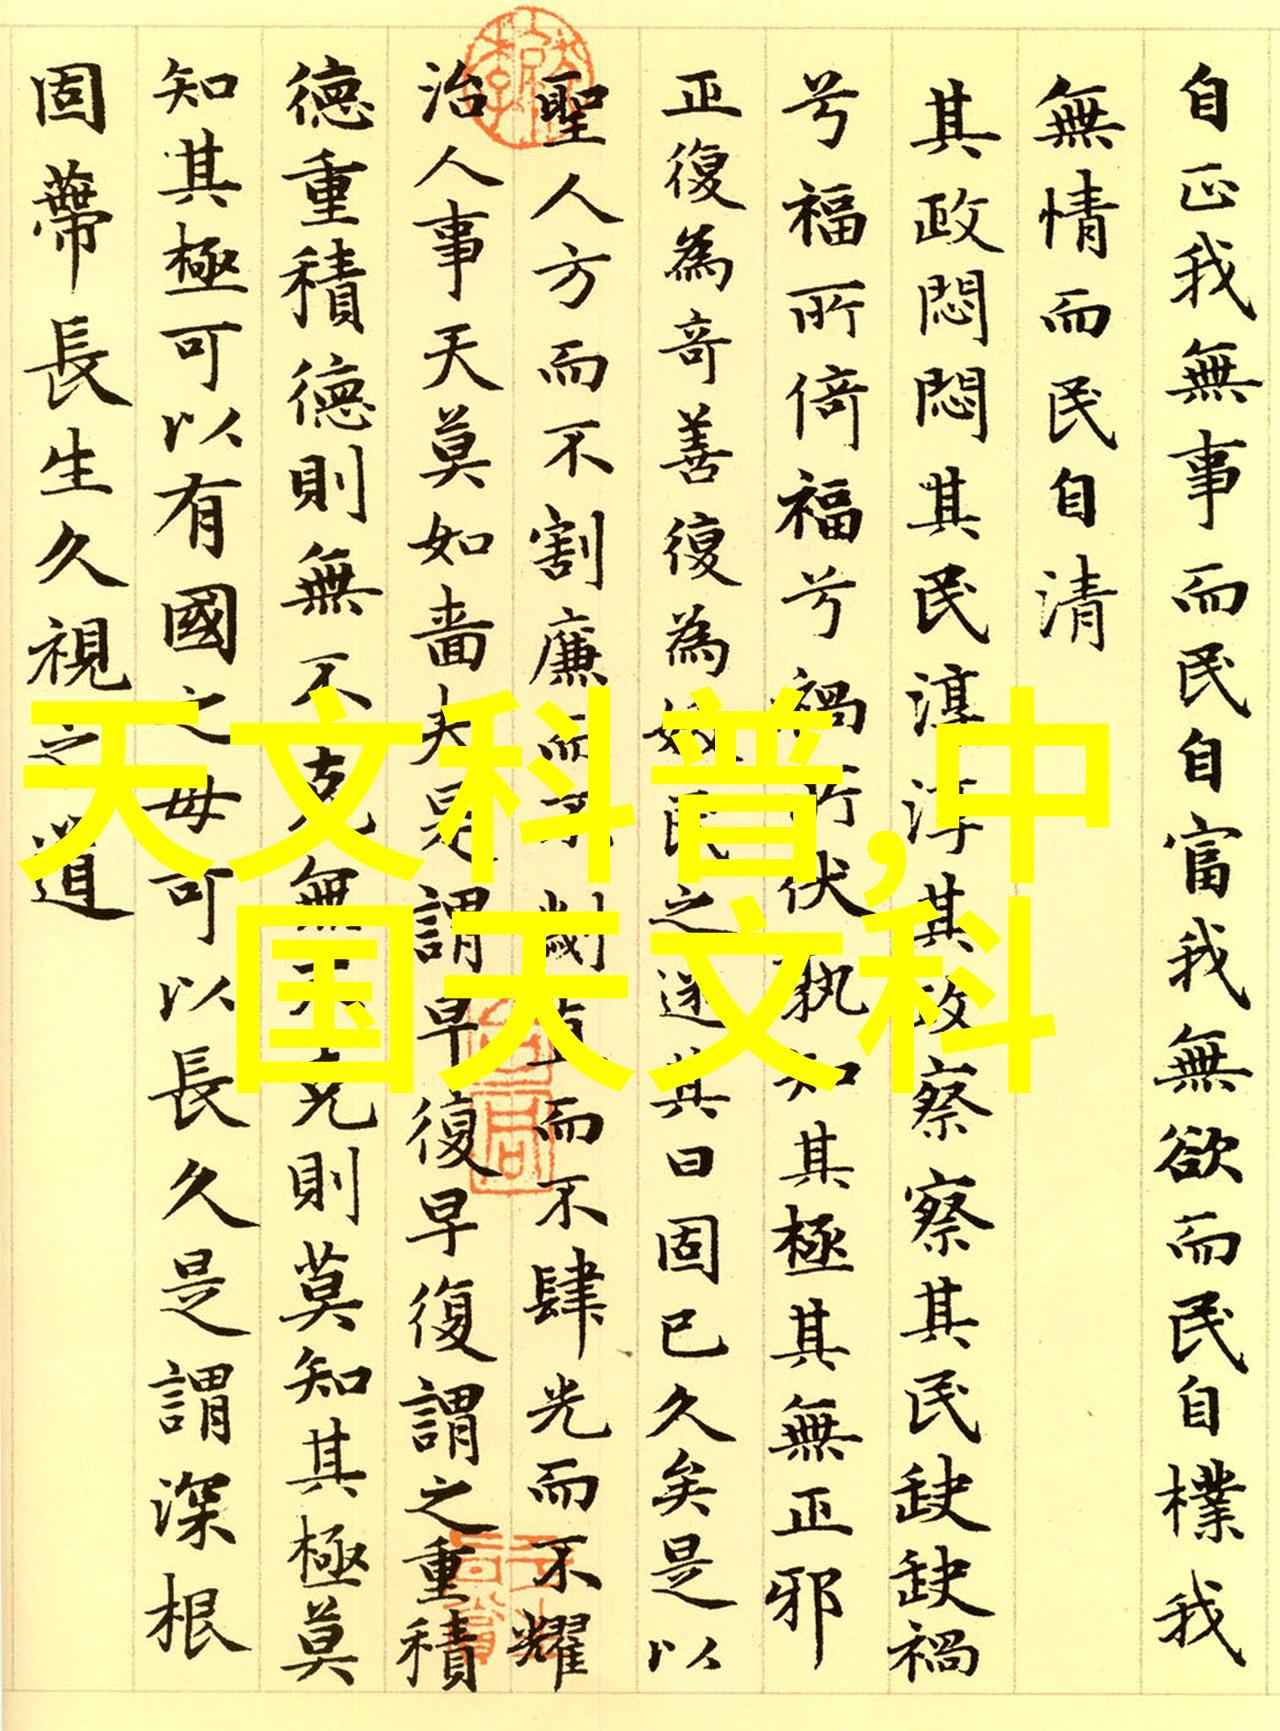 自正我無事而民自富我無欲而民自樸我
無情而民自清
其政悶悶其民淳淳其政察察其民缺缺禍
兮福所倚福兮禍所伏孰知其極其無正邪
正復為奇善復為妖民之迷其日固已久矣是以
聖人方而不割廉而不劌直而不肆光而不耀
治人事天莫如嗇夫是謂早復早復謂之重積
德重積德則無不克無不克則莫知其極莫
知其極可以有國之母可以長久是謂深根
固蔕長生久視之道
天文科普,中
国天文科